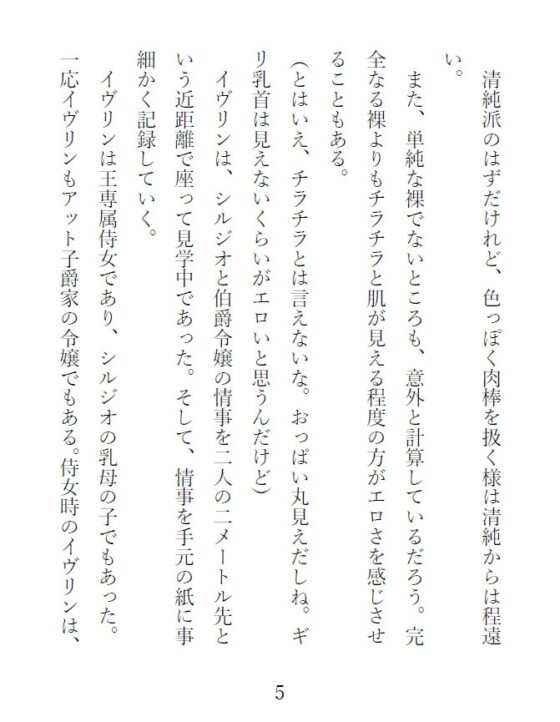 清純派のはずだけれど、色っぽく肉棒を扱く様は清純からは程遠
い。
また、単純な裸でないところも、意外と計算しているだろう。完
全なる裸よりもチラチラと肌が見える程度の方がエロさを感じさせ
ることもある。
(とはいえ、チラチラとは言えないな。おっぱい丸見えだしね。ギ
リ乳首は見えないくらいがエロいと思うんだけど)
イヴリンは、シルジオと伯爵令嬢の情事を二人の二メートル先と
いう近距離で座って見学中であった。そして、情事を手元の紙に事
細かく記録していく。
イヴリンは王専属侍女であり、シルジオの乳母の子でもあった。
一応イヴリンもアット子爵家の令嬢でもある。侍女時のイヴリンは、
5